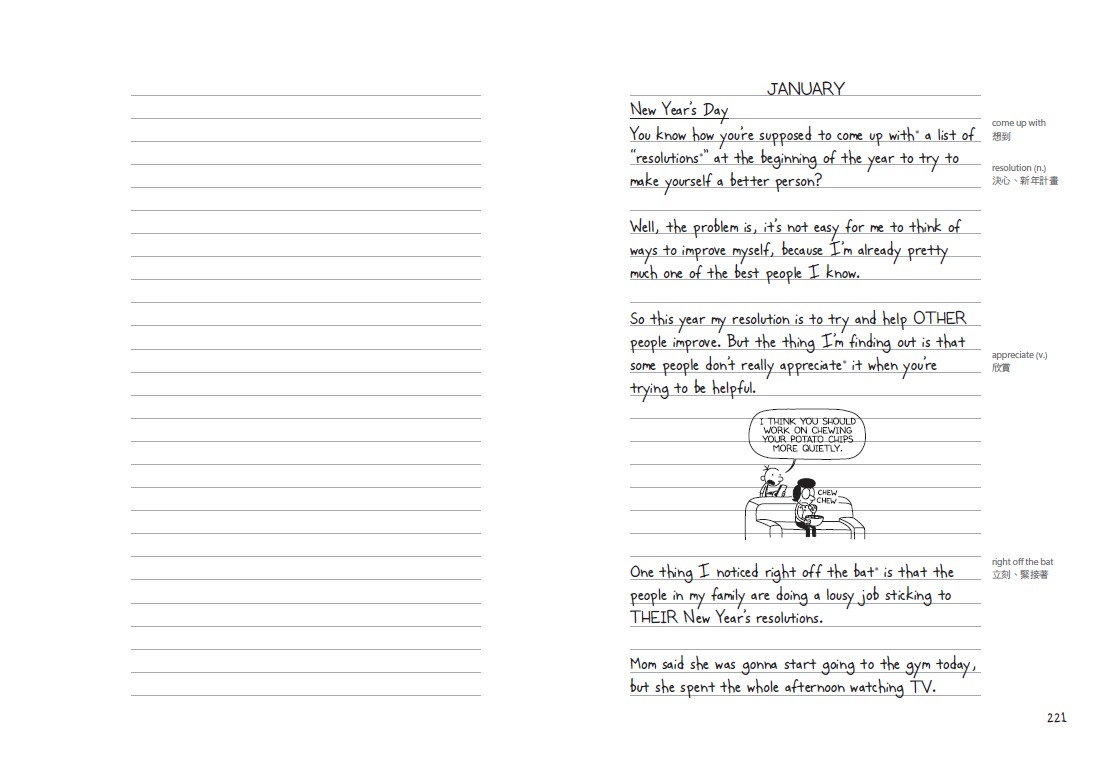 JANUARY
New Year's Day
You know how you're supposed to come up with* a list of
"resolutions*" at the beginning of the year to try to
make yourself a better person?
Well, the problem is, it's not easy for me to think of
ways to improve myself, because I'm already pretty
much one of the best people I know.
So this year my resolution is to try and help OTHER
people improve. But the thing I'm finding out is that
some people don't really appreciate* it when you're
trying to be helpful.
I THINK YOU SHOULD
WORK ON CHEWING
YOUR POTATO CHIPS
MORE QUIETLY.
CHEW
CHEW
One thing I noticed right off the bat* is that the
people in my family are doing a lousy job sticking to
THEIR New Year's resolutions.
Mom said she was gonna start going to the gym today,
but she spent the whole afternoon watching TV.
come up with
想到
resolution (n.)
決心、新年計畫
appreciate (v.)
欣賞
right off the bat
立刻、緊接著
221